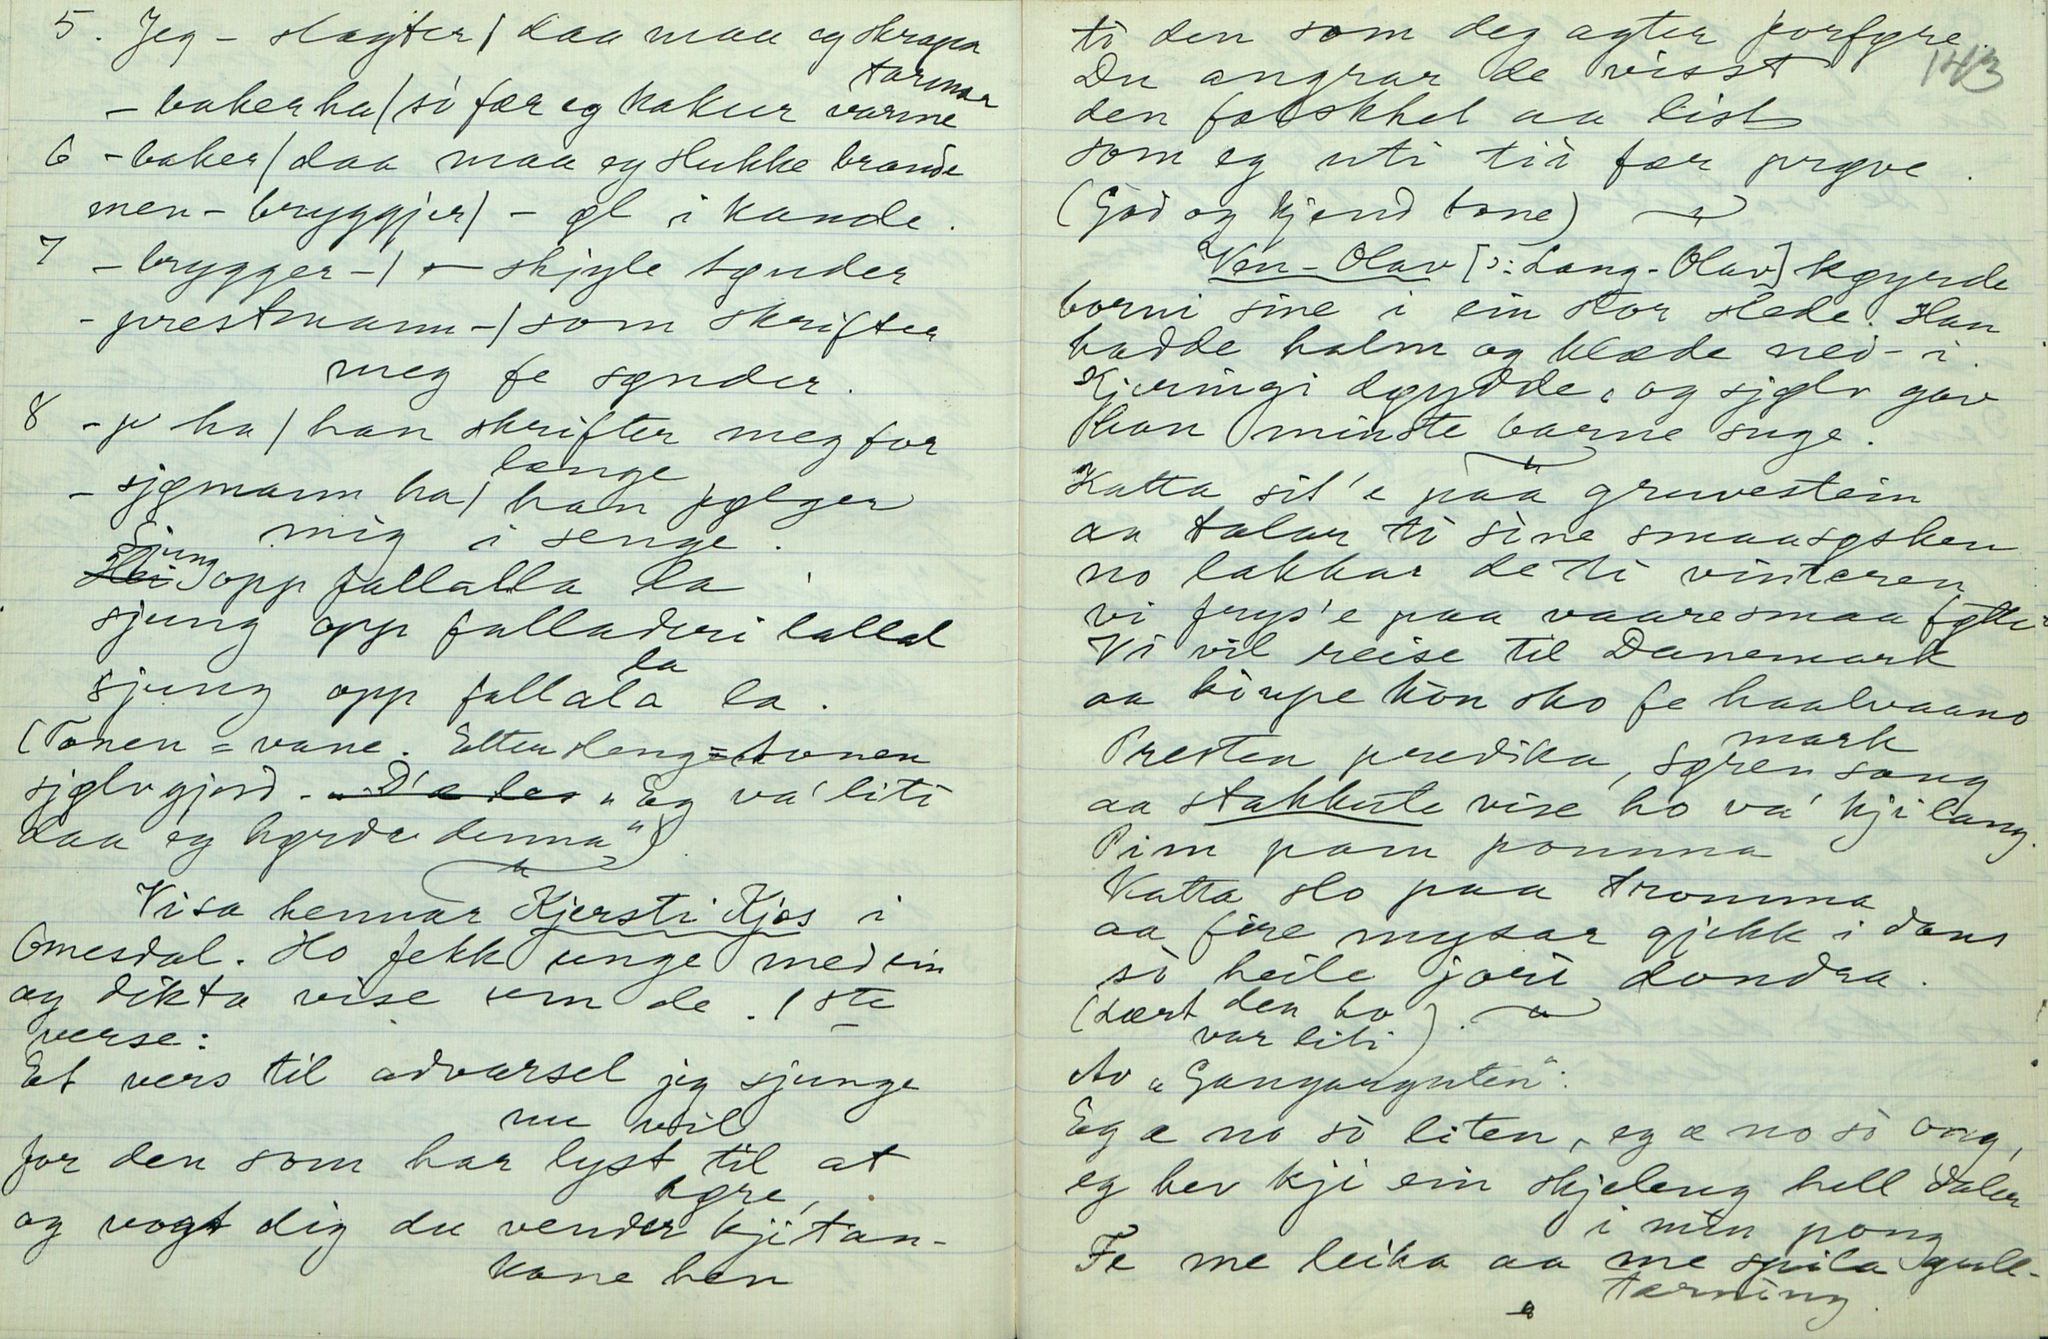 5. Jeg – slagter / daa maa eg skrapa
tarmar
– baker ha / sò fær eg kakur varme
6 – baker / daa maa eg slukke brande
men – bryggjer / – øl i kande.
7 – brygger – / – skjyle tønder
– prestmann – / som skrifter
meg fe sønder.
8 – p ha / han skrifter meg for
længe
– sjømann ha / han følger
mig i senge.
Sjung opp fallalla la
sjung opp falladeri lallal
sjung opp fallala la la.
(Tonen = vane. Ettersleng = tonen
sjølvgjord. „Eg va' liti
daa eg hørde denna“)
Visa hennar Kjersti Kjos i
Omesdal. Ho fekk unge med ein
og dikta vise um de. 1ste
verse:
Et vers til advarsel jeg sjunge
nu vil
for den som har lyst til at
høre,
og vogt dig du vender kji tan-
kane hen
143
ti den som deg agter forføre.
Du angrar de visst
den falskhet aa list
som eg uti tii fær prøve.
(God og kjend tone)
Ven-Olav [ɔ: Lang-Olav] køyrde
borni sine i ein stor slede. Han
hadde halm og klæde ned-i.
Kjeringi døydde, og sjølv gav
han minste barne suge.
Katta sit'e paa gruvestein
aa talar ti sine smaasøsken
no lakkar de ti vinteren
vi frys'e paa vaare smaa føtter
Vi vil reise til Danemark
aa kjøpe kòn sko fe haalvaano
mark
Presten predika, søren song
aa stakkute vise ho va' kji lang.
Pim pam pomma
Katta slo paa tromma
aa fire mysar gjekk i dans
sò heile jori dondra.
(Lært den ho
var liti)
Av „Gangarguten“:
Eg æ no sò liten, eg æ no sò ong,
eg hev kji ein skjeleng hell daler
i min pong
Fe me leika aa me spila gull-
tærning.